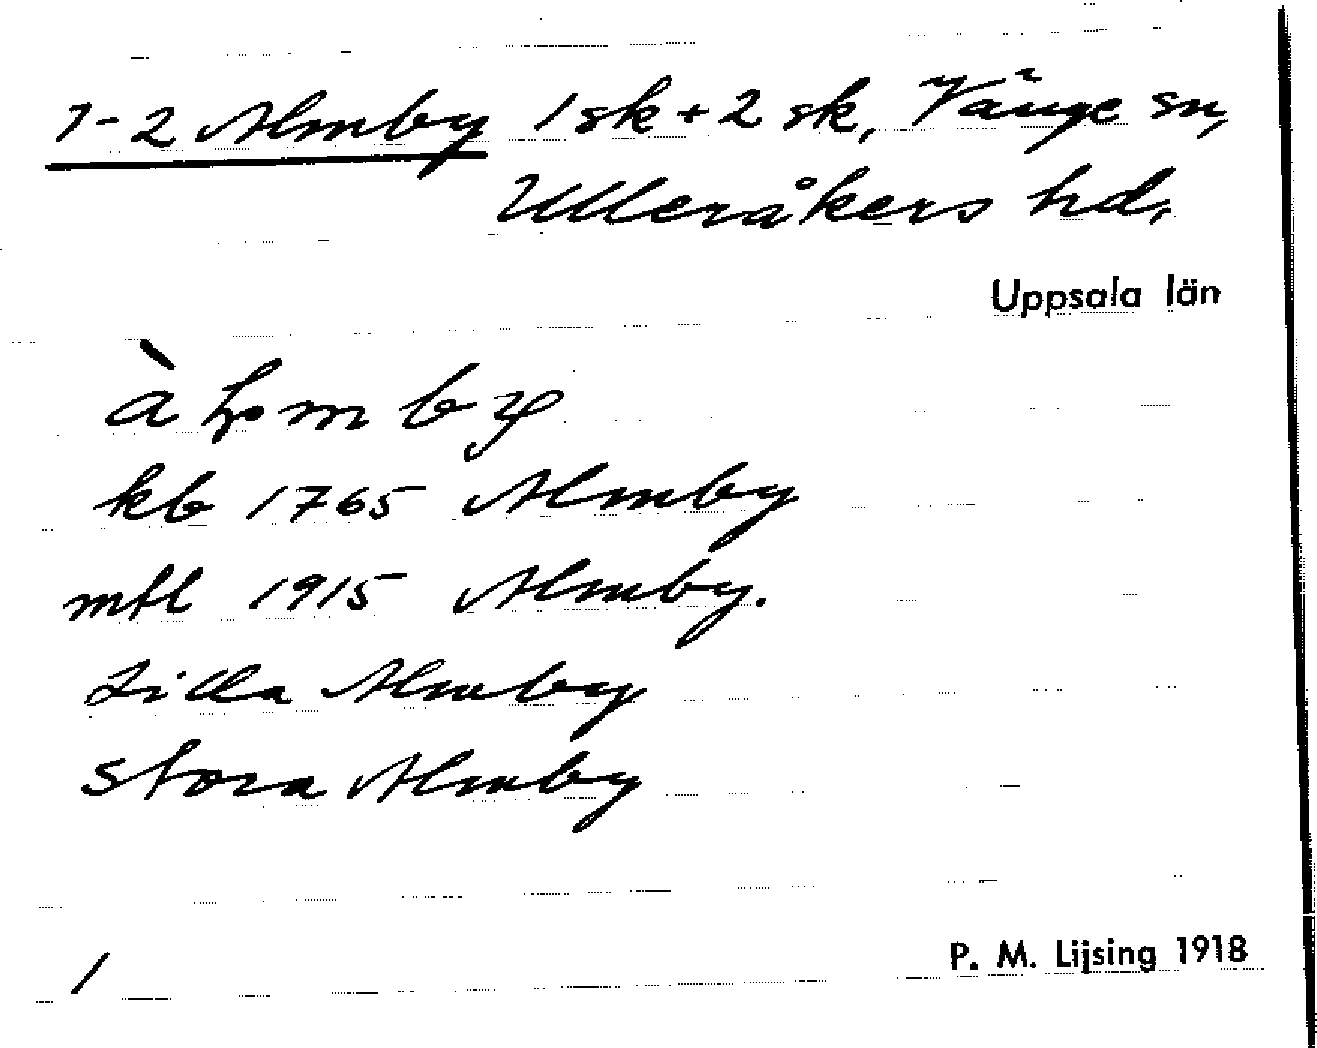 1-2 Almby 1 sk + 2 sk, Vänge sn,
Ulleråkers hd,
Uppsala län
kb 1765 Almby
mtl 1915 Almby.
Lilla Almby
Stora Almby
/
P. M. Lijsing 1918